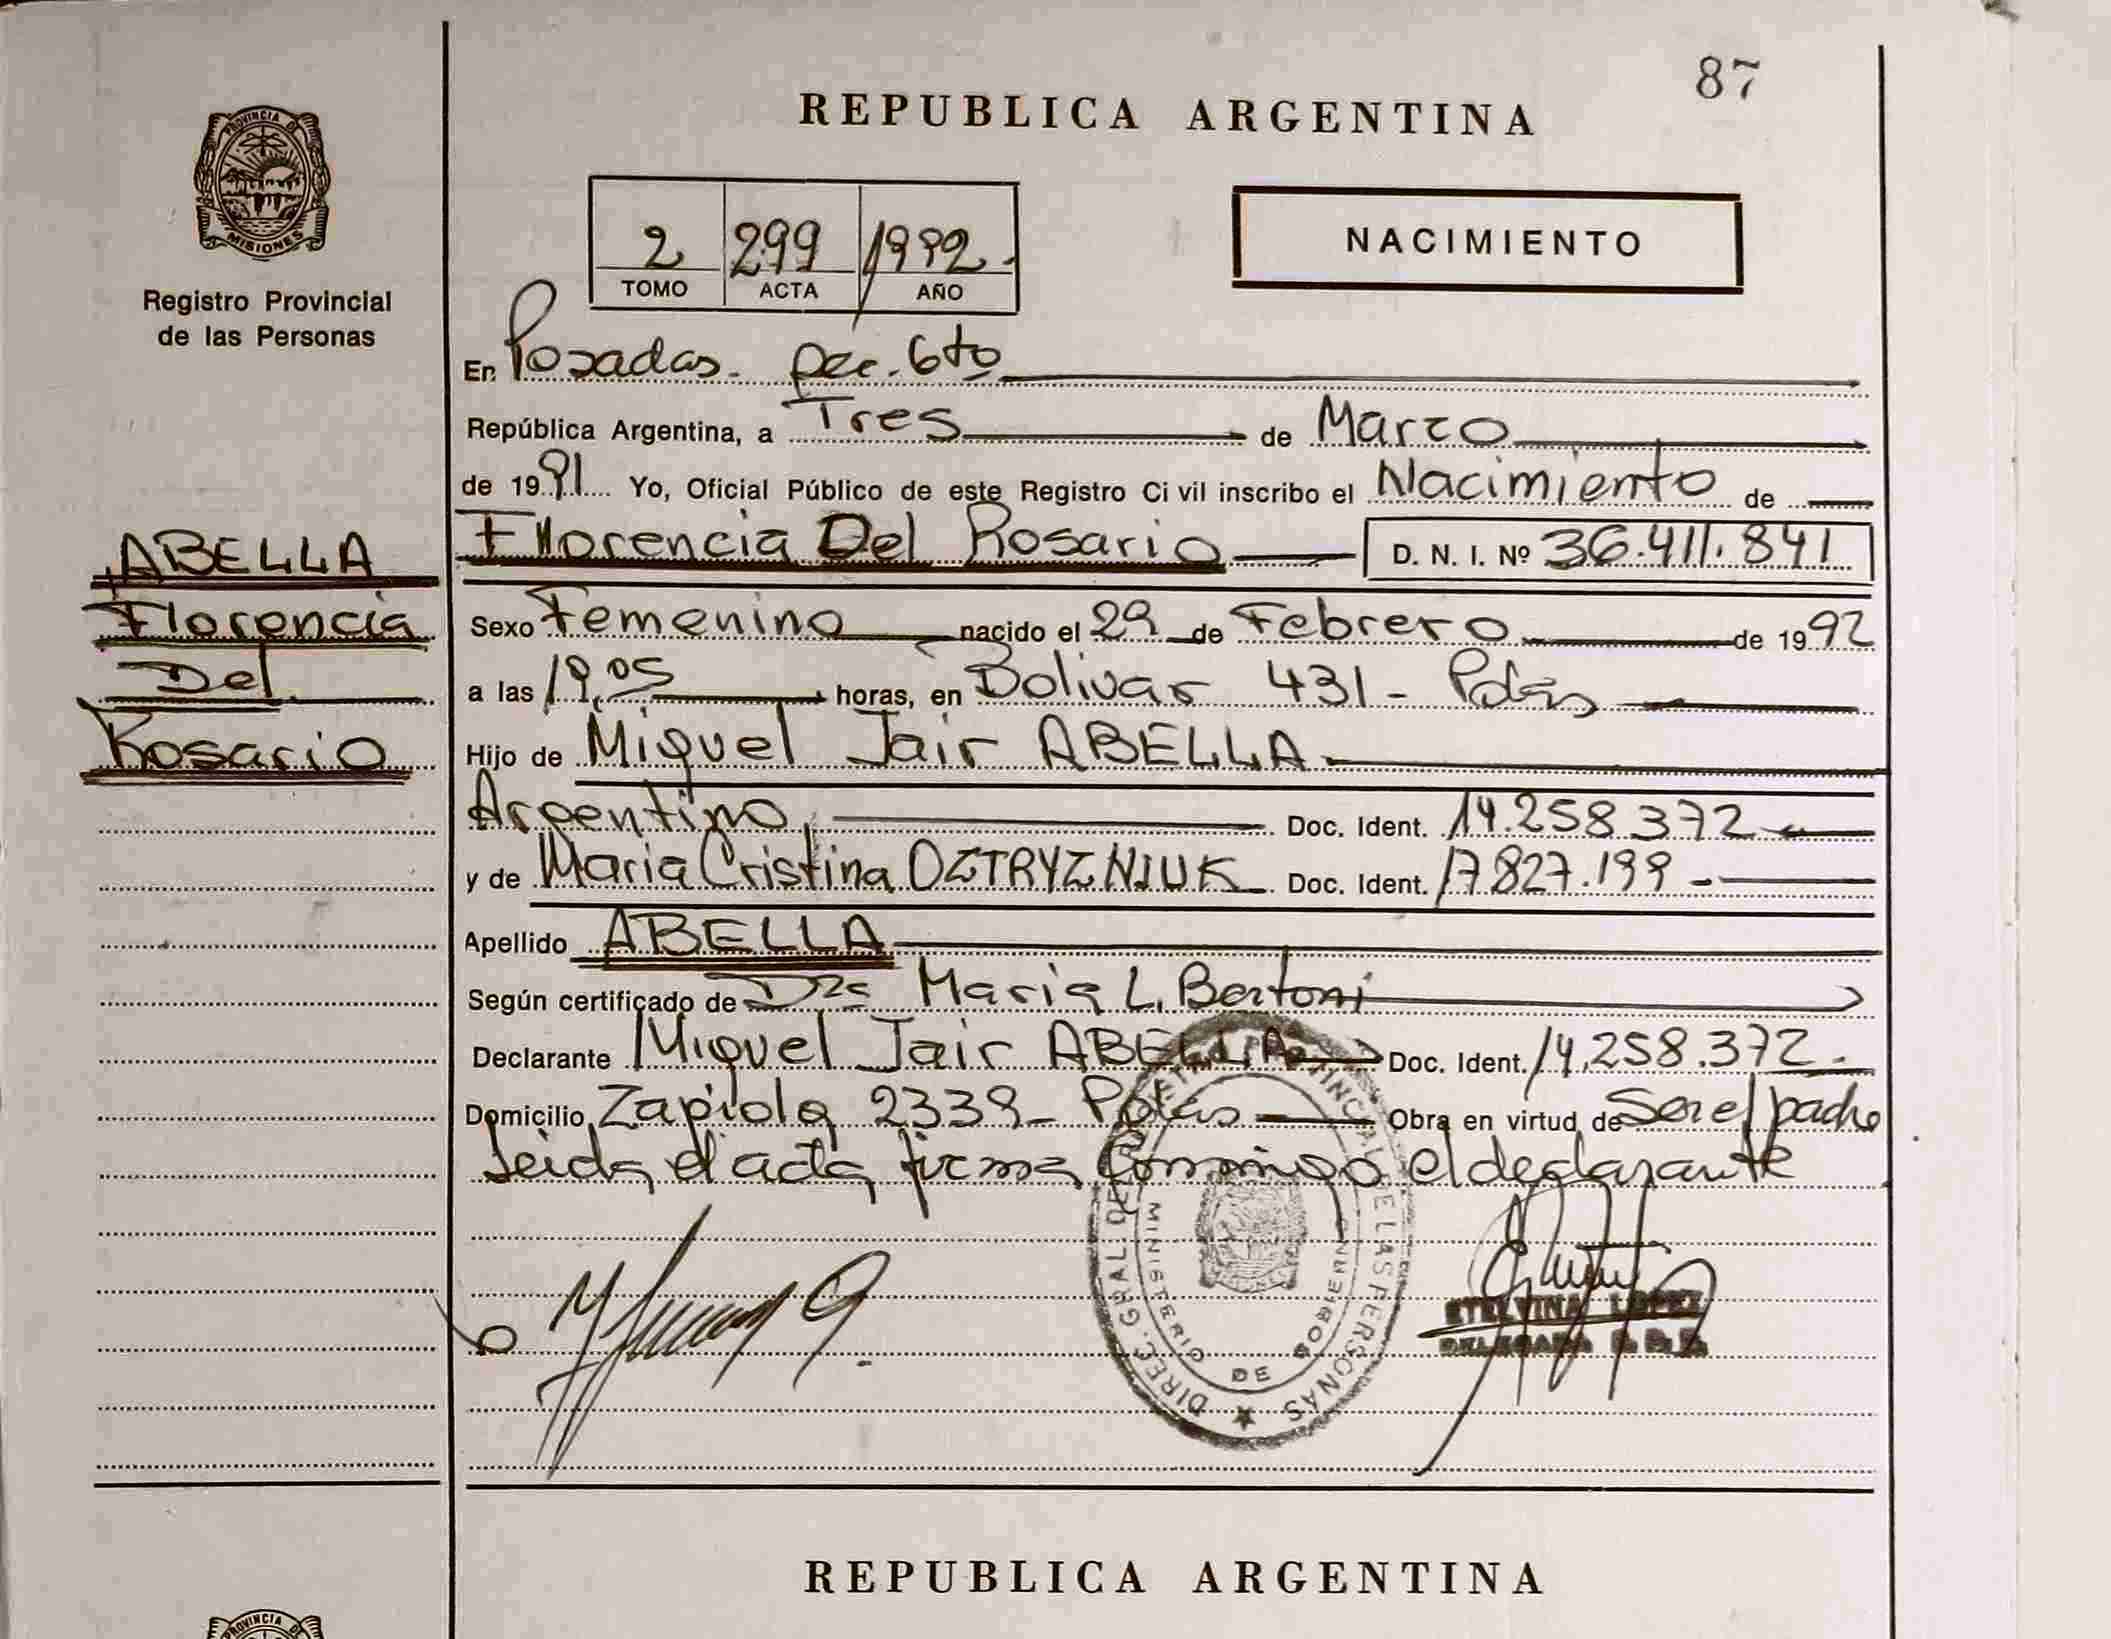 87
REPUBLICA ARGENTINA
PROVINCIA DE MISIONES
Registro Provincial
de las Personas
2 299 1992
TOMO ACTA AÑO
NACIMIENTO
En Posadas. Sec. 6to
República Argentina, a Tres de Marzo
de 1991 Yo, Oficial Público de este Registro Civil inscribo el Nacimiento de
ABELLA
Florencia
Del
Rosario
Florencia Del Rosario D. N. I. Nº 36.411.841
Sexo Femenino nacido el 29 de Febrero de 1992
a las 19,05 horas, en Bolivar 431 - Pdas
Hijo de Miguel Jair ABELLA
Argentino, Doc. Ident. 14.258.372
y de Maria Cristina OZTRYZNIUK Doc. Ident. 17.827.199
Apellido ABELLA
Según certificado de Dra Maria L. Bertoni
Declarante Miguel Jair ABELLA Doc. Ident. 14.258.372.
Domicilio Zapiola 2339 - Pdas Obra en virtud de Ser el padre
Leida el acta, firma conmigo el declarante
DIREC. GRAL DEL PROVINCIAL DE LAS PERSONAS
MINISTERIO DE GOBIERNO
ETELVINA LOPEZ
DELEGADA
REPUBLICA ARGENTINA
PROVINCIA DE